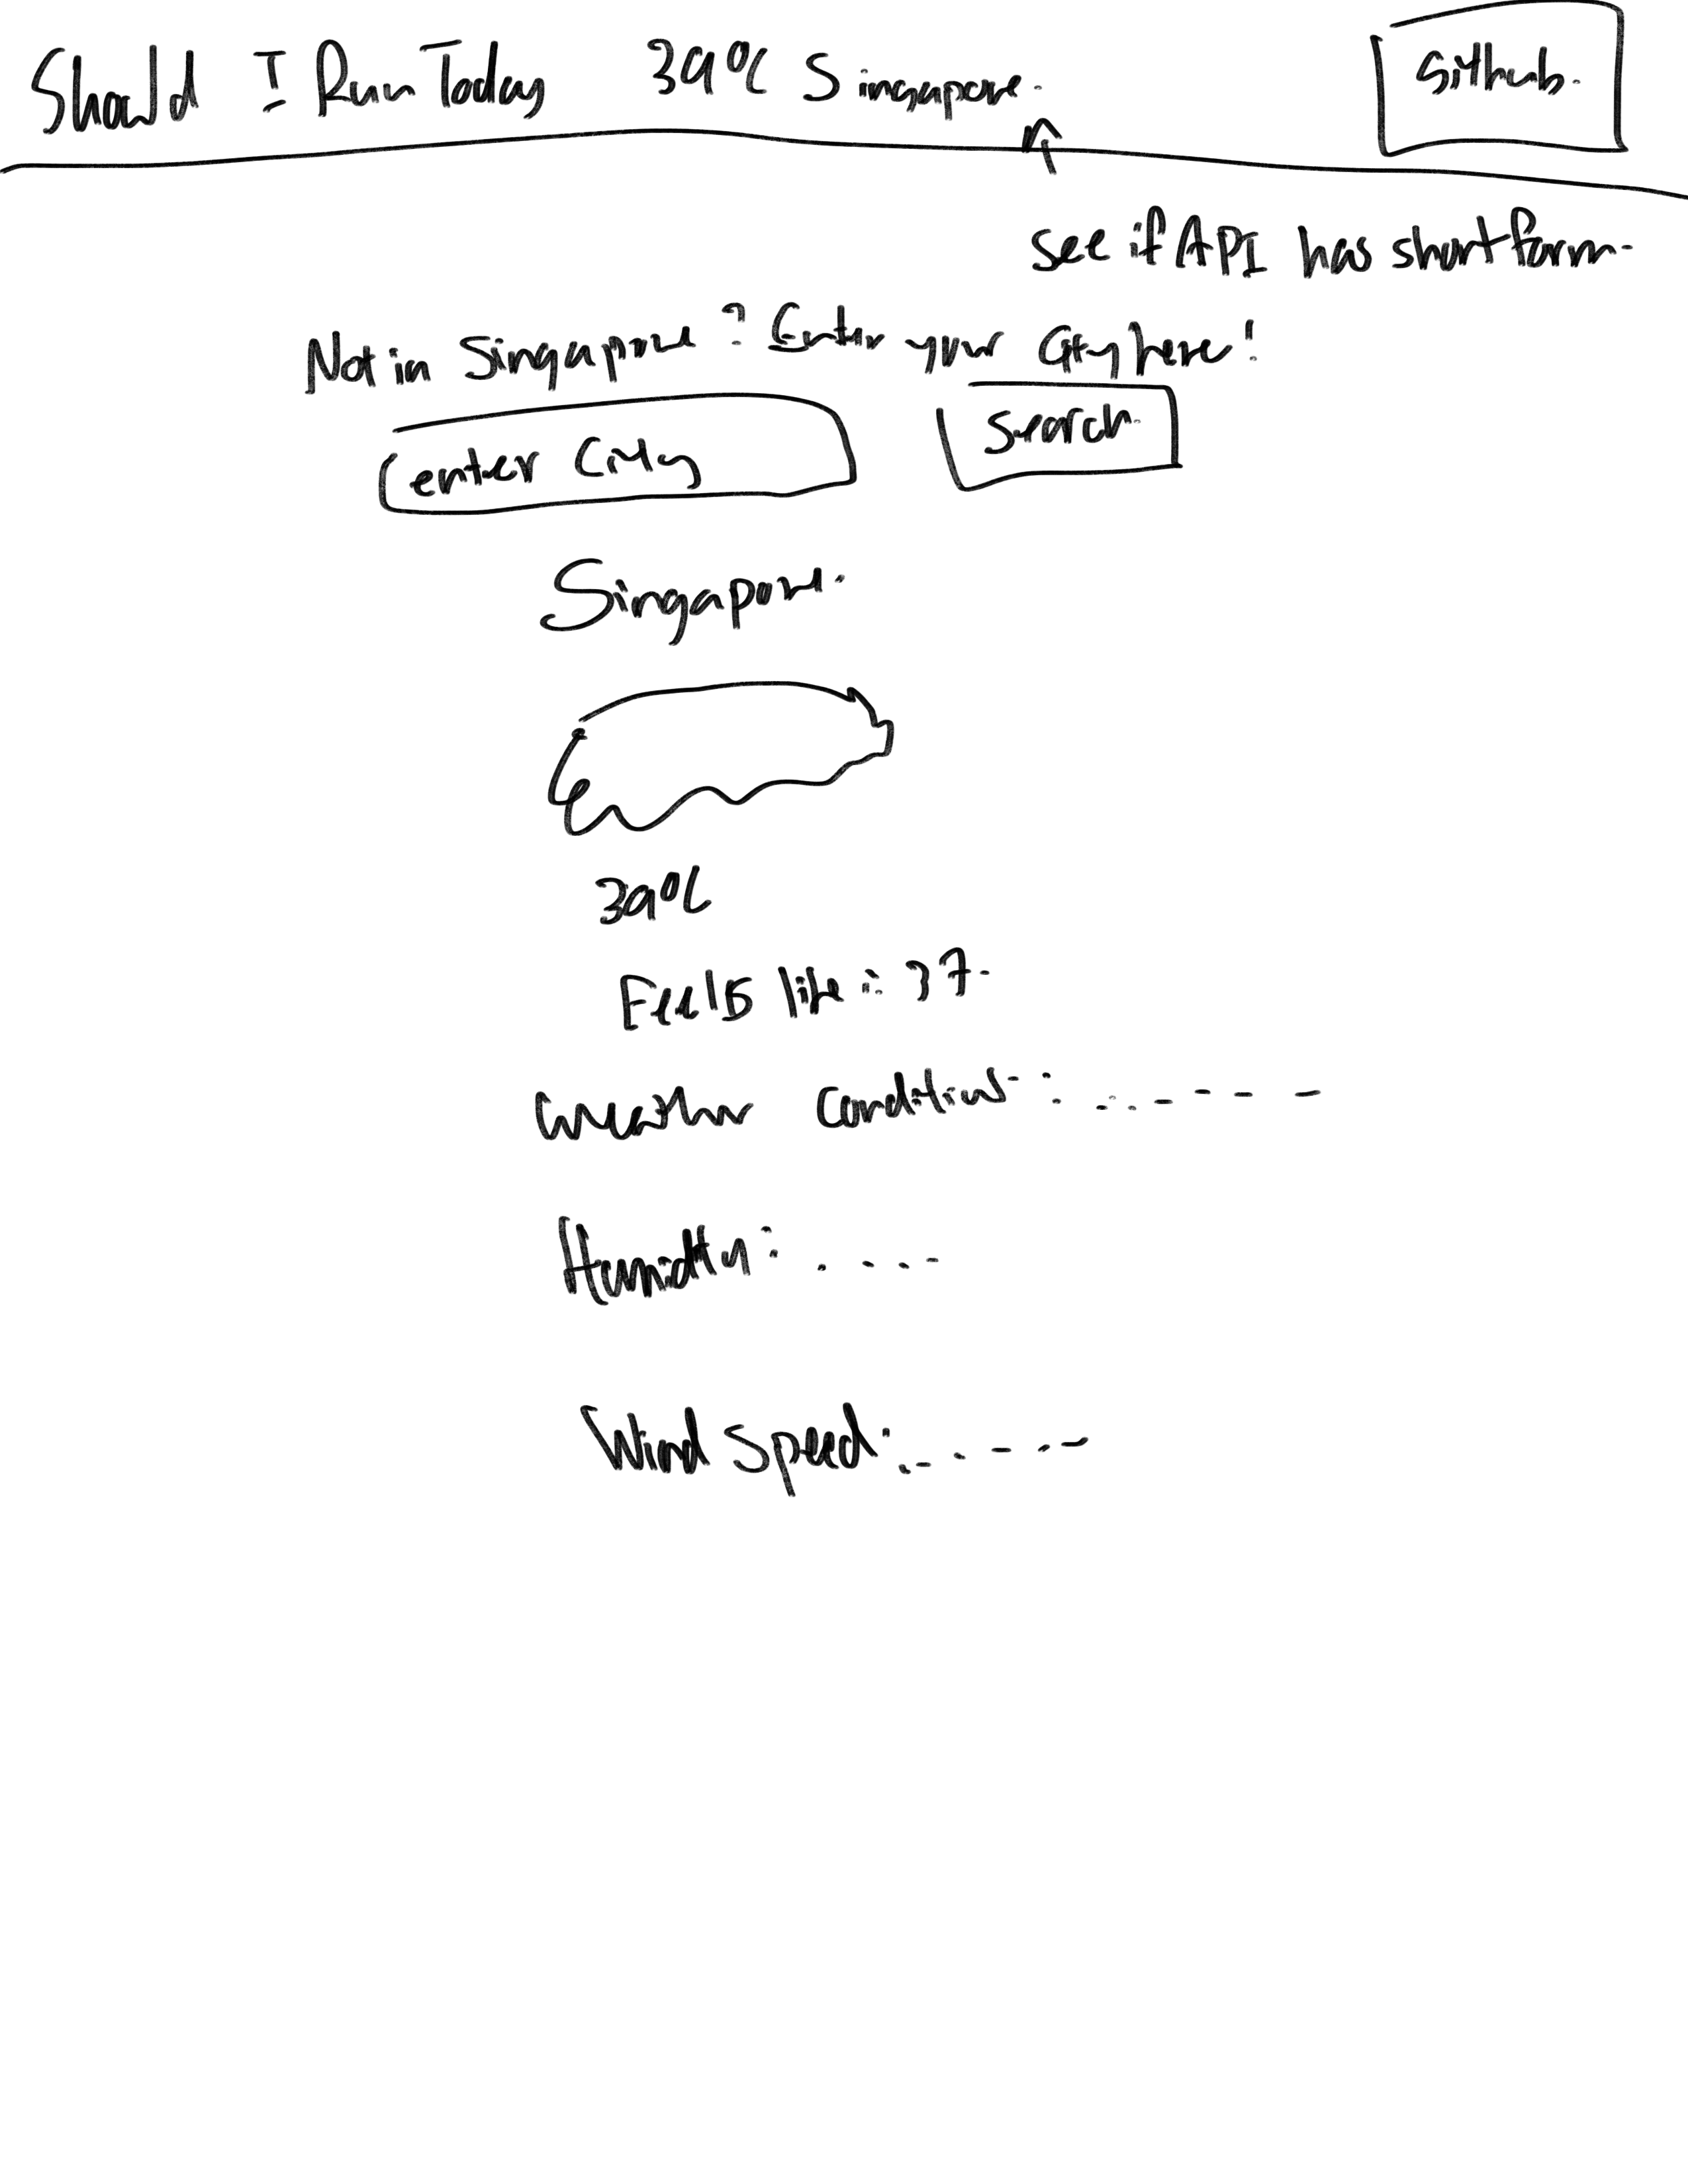 Should I Run Today 39°C Singapore.
Github.
see if API has short form.
Not in Singapore? Enter your City here!
enter City
Search.
Singapore.
39°C
Feels like: 37.
Weather Conditions: . . - - - -
Humidity: . . . . -
Wind Speed: . - . - . -